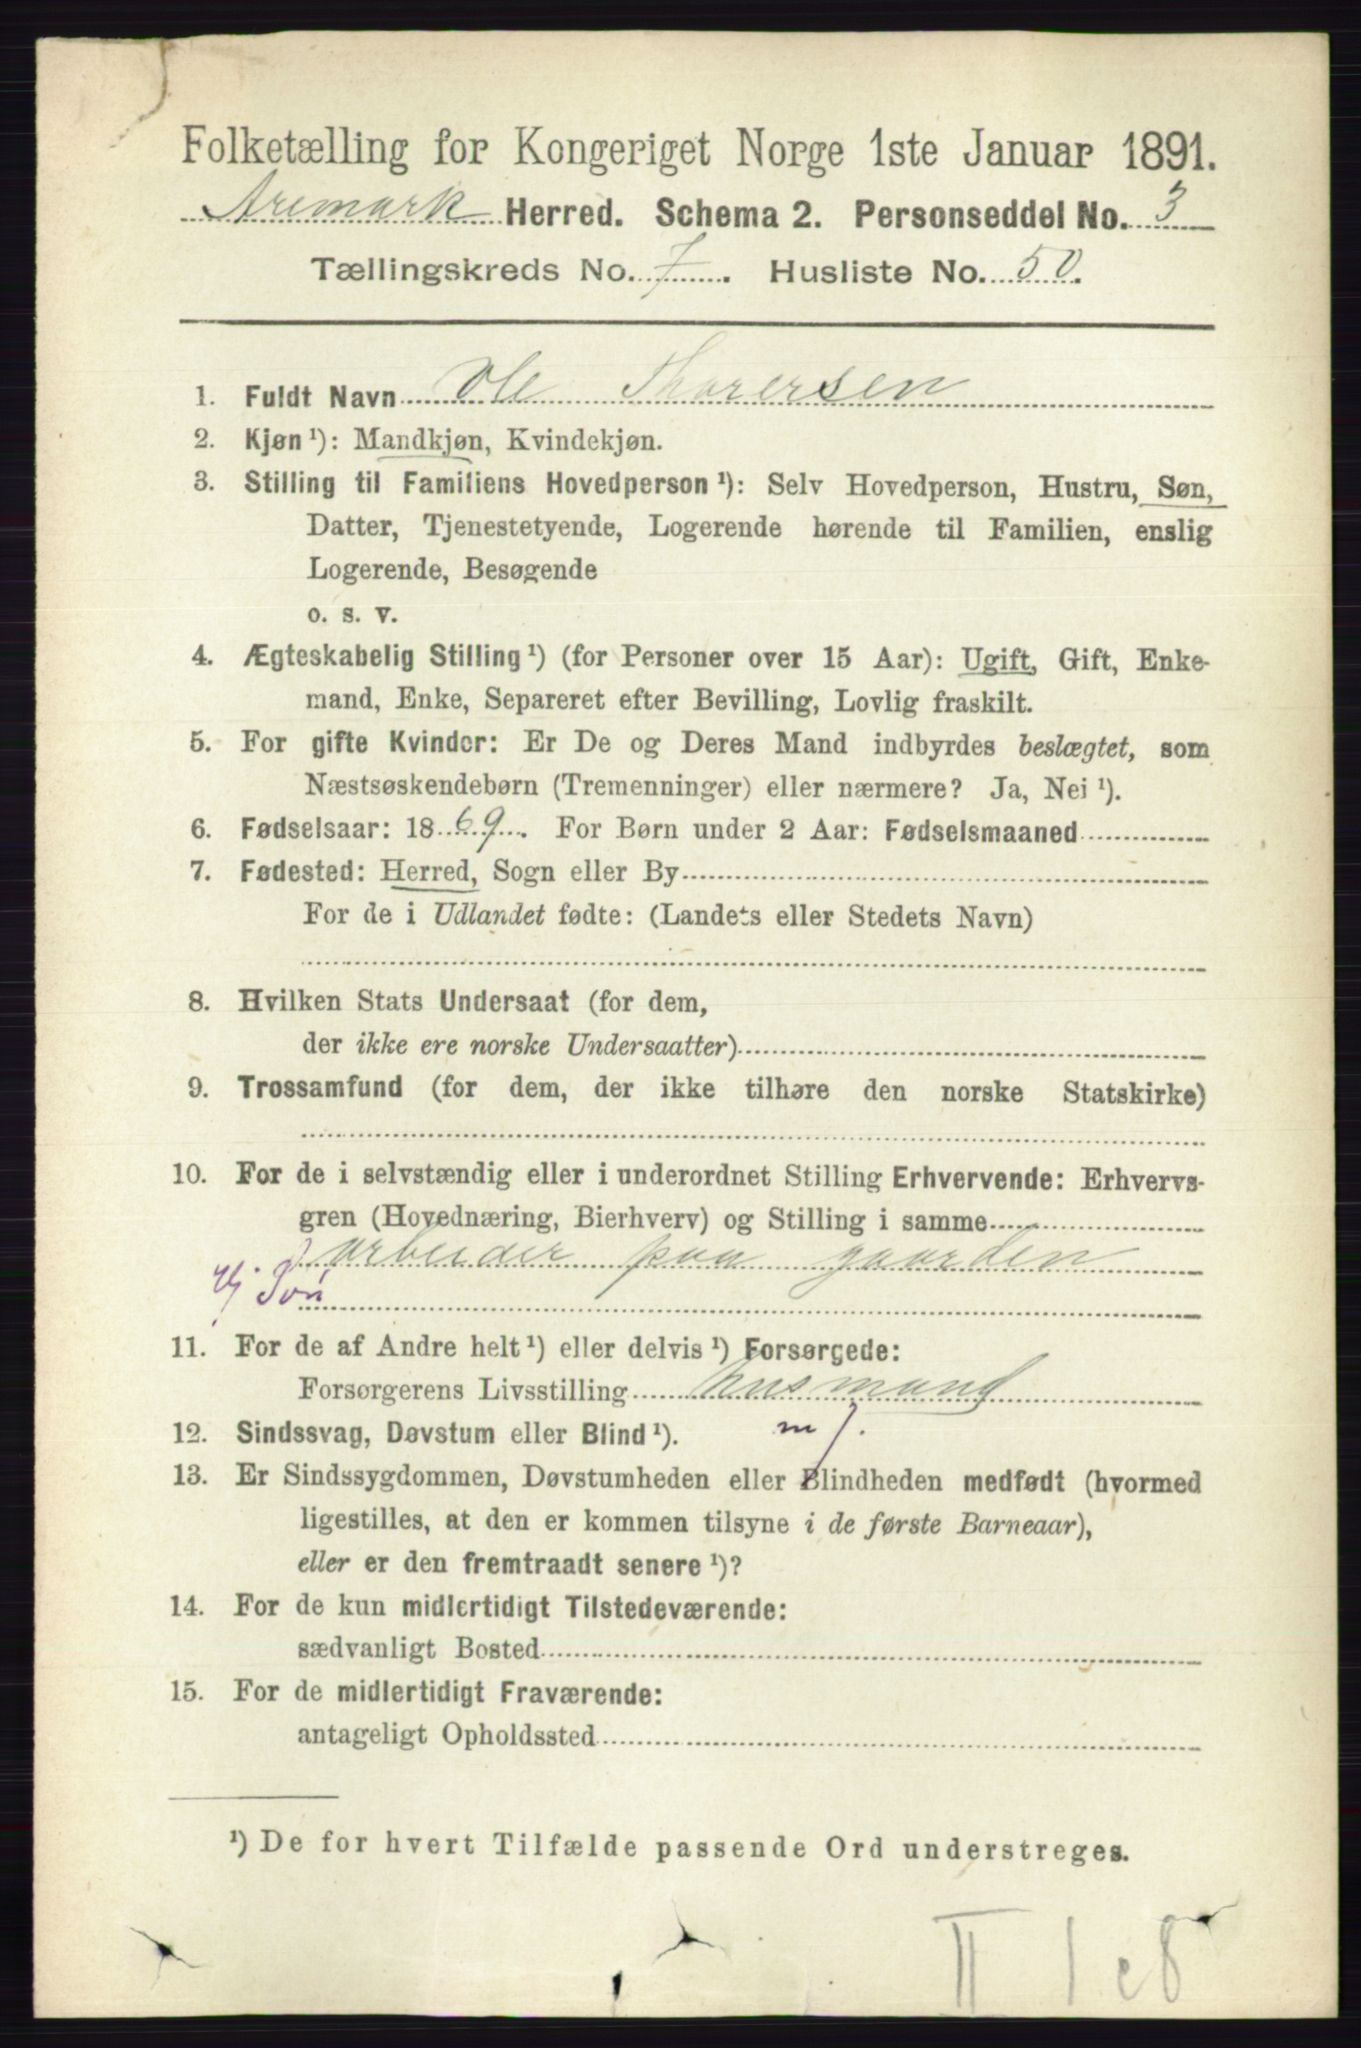 Folketælling for Kongeriget Norge 1ste Januar 1891.
Aremark Herred. Schema 2. Personseddel No. 3
Tællingskreds No. 7. Husliste No. 50.
1. Fuldt Navn Ole Thorersen
2. Kjøn ¹): Mandkjøn, Kvindekjøn.
3. Stilling til Familiens Hovedperson ¹): Selv Hovedperson, Hustru, Søn,
Datter, Tjenestetyende, Logerende hørende til Familien, enslig
Logerende, Besøgende
o. s. v.
4. Ægteskabelig Stilling ¹) (for Personer over 15 Aar): Ugift, Gift, Enke-
mand, Enke, Separeret efter Bevilling, Lovlig fraskilt.
5. For gifte Kvinder: Er De og Deres Mand indbyrdes beslægtet, som
Næstsøskendebørn (Tremenninger) eller nærmere? Ja, Nei ¹).
6. Fødselsaar: 1869. For Børn under 2 Aar: Fødselsmaaned
7. Fødested: Herred, Sogn eller By
For de i Udlandet fødte: (Landets eller Stedets Navn)
8. Hvilken Stats Undersaat (for dem,
der ikke ere norske Undersaatter)
9. Trossamfund (for dem, der ikke tilhøre den norske Statskirke)
10. For de i selvstændig eller i underordnet Stilling Erhvervende: Erhvervs-
gren (Hovednæring, Bierhverv) og Stilling i samme
arbeider paa gaarden
Søn
11. For de af Andre helt ¹) eller delvis ¹) Forsørgede:
Forsørgerens Livsstilling husmand
m j.
12. Sindssvag, Døvstum eller Blind ¹).
13. Er Sindssygdommen, Døvstumheden eller Blindheden medfødt (hvormed
ligestilles, at den er kommen tilsyne i de første Barneaar),
eller er den fremtraadt senere ¹)?
14. For de kun midlertidigt Tilstedeværende:
sædvanligt Bosted
15. For de midlertidigt Fraværende:
antageligt Opholdssted
¹) De for hvert Tilfælde passende Ord understreges.
II 1